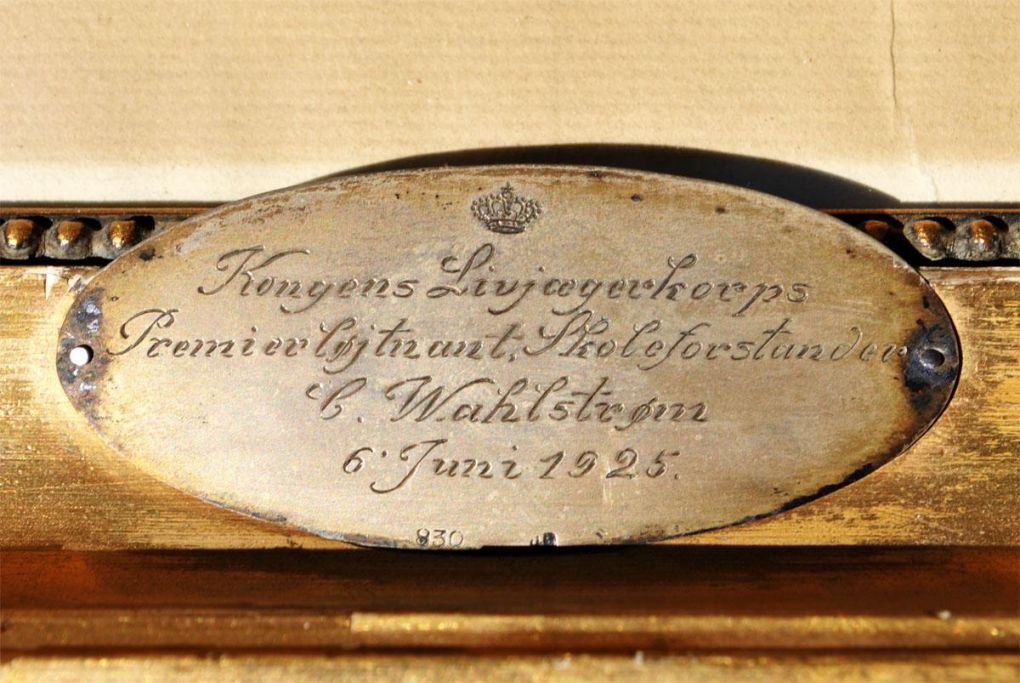 Kongens Livjægerkorps
Premierløjtnant, Skoleforstander
C. Wahlstrøm
6. Juni 1925.
830